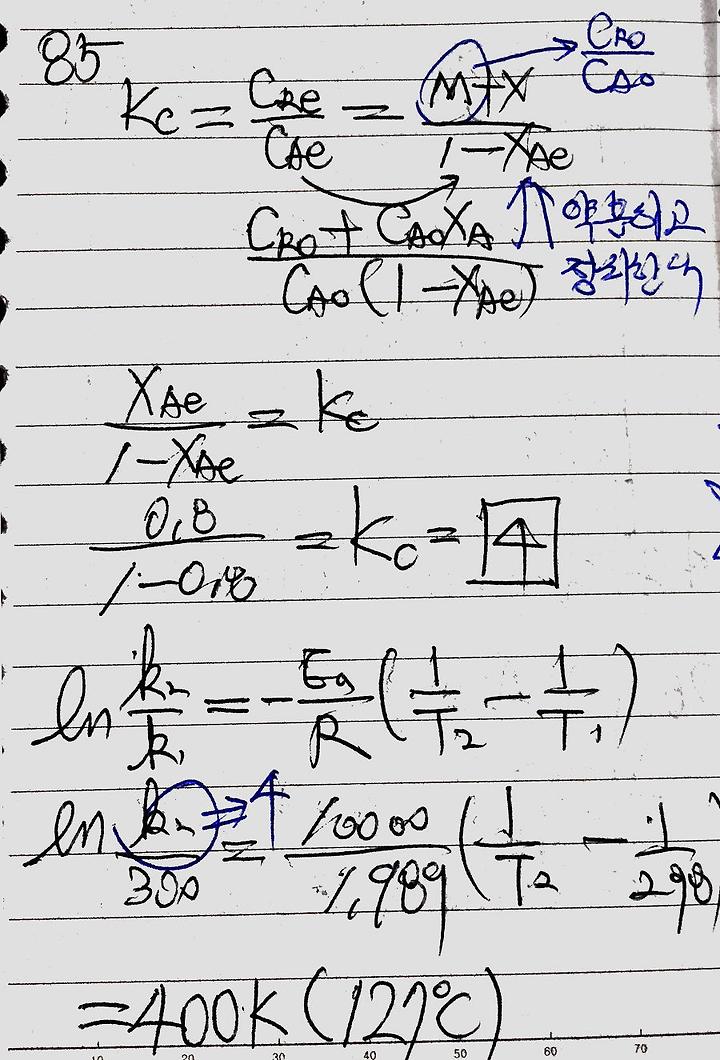 85
Kc = CRe/CAe = (M+X)/(1-XAe) → CRo/CAo
(CRo + CAoXA)/(CAo(1-XAe)) ⇑ 약분하고
정리한다
XAe/(1-XAe) = Kc
0.8/(1-0.8) = Kc = 4
ln k₂/k₁ = -Ea/R (1/T₂ - 1/T₁)
ln k₂/300 ⇒ 4 = 10000/1.989 (1/T₂ - 1/298
=400K (127°C)
10 20 30 40 50 60 70